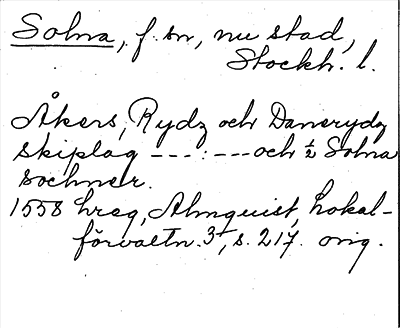 Solna, f. sn, nu stad,
Stockh. l.
Åkers, Rydz och Danerydz
skiplag ---:---och ½ Solna
sochner.
1558 hreg, Almquist, Lokal-
förvaltn. 3, s. 217. orig.